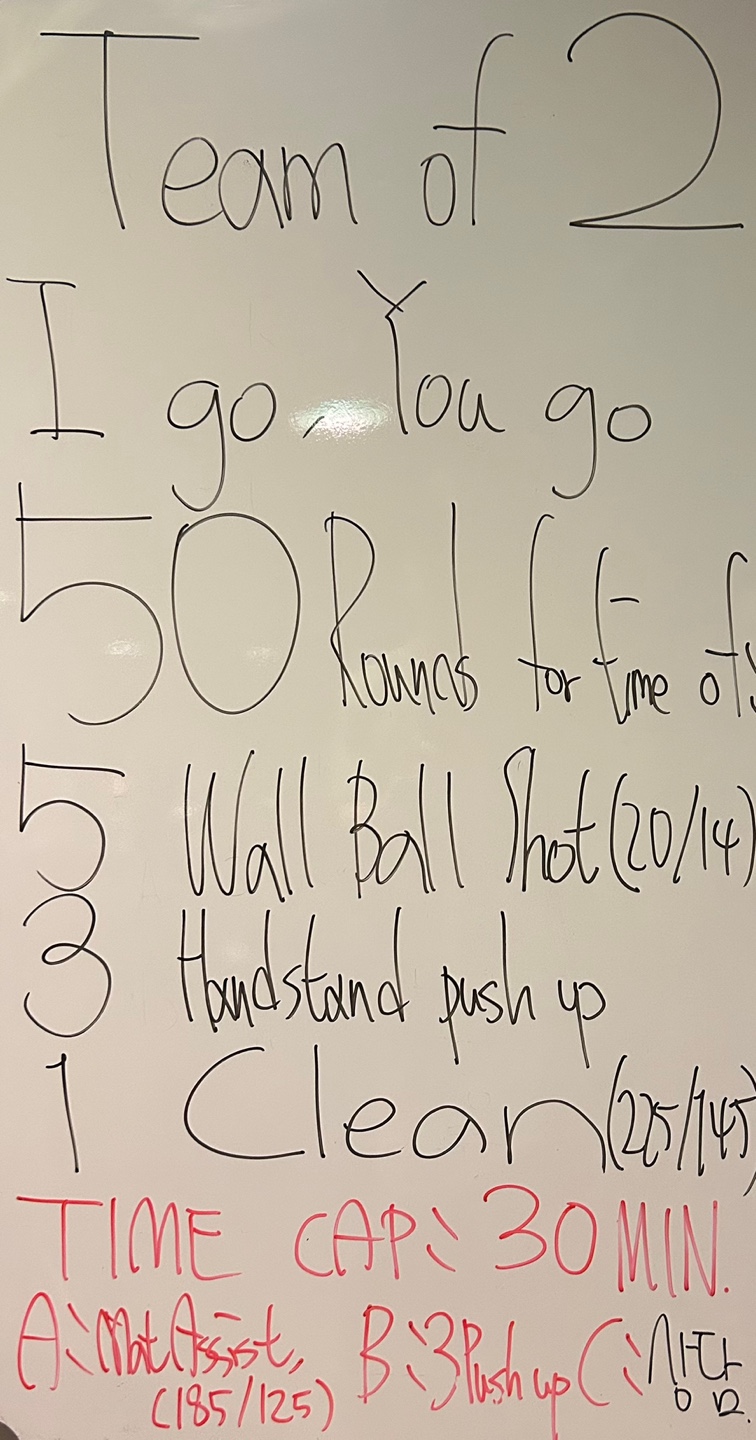 Team of 2
I go, You go
50 Rounds for time of:
5 Wall Ball Shot (20/14)
3 Handstand push up
1 Clean (225/145)
TIME CAP: 30 MIN.
A: Mat Assist, B: 3 Push up C: 상담
(185/125)